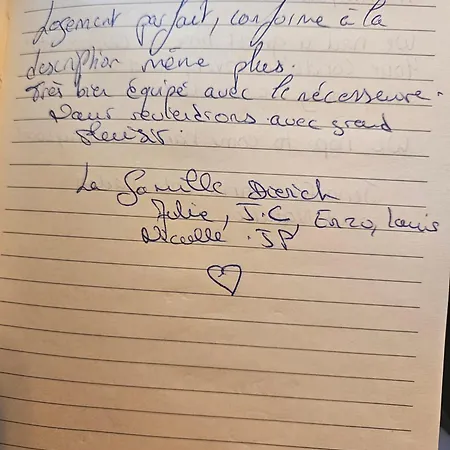 Logement parfait, conforme à la
description même plus.
Très bien équipé avec le nécesseure.
Nous reviendrons avec grand
plaisir.
La famille Doerich
Julie, J.C, Enzo, Louis
JP